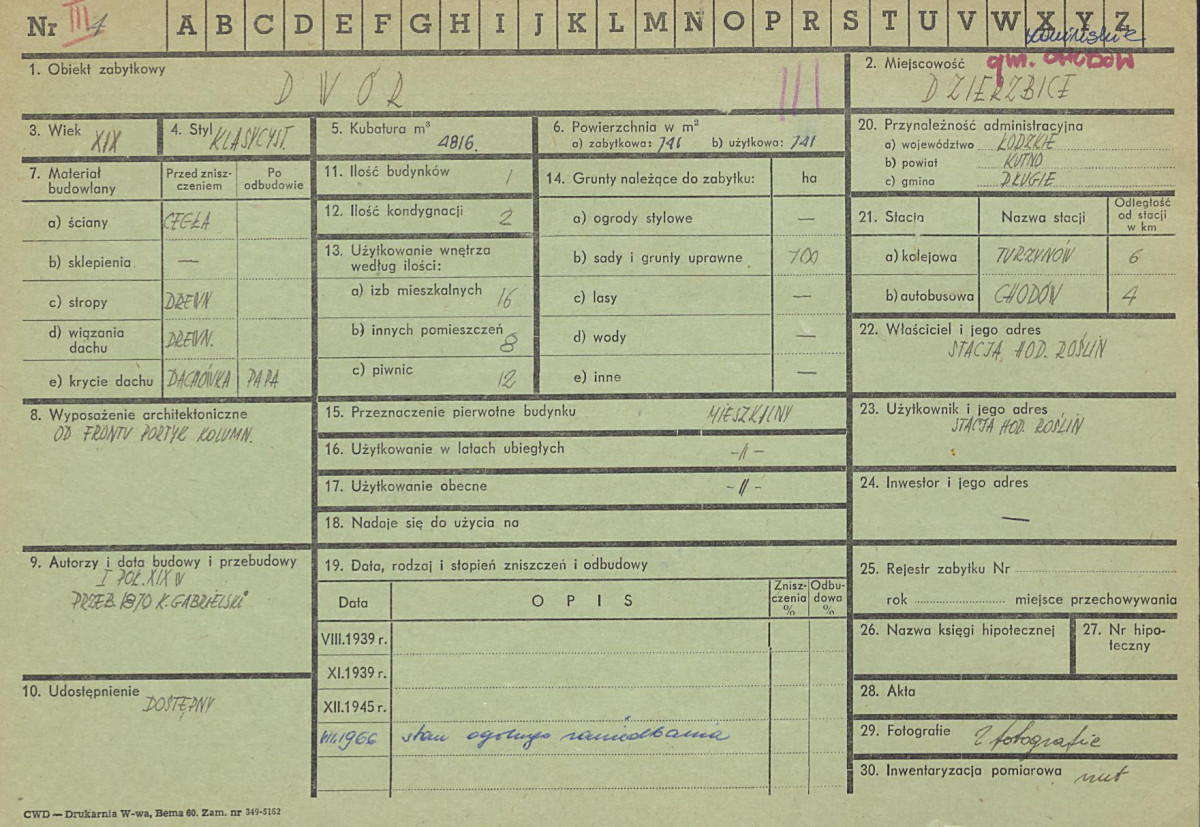 Nr III 1
A B C D E F G H I J K L M N O P R S T U V W X Y Z
1. Obiekt zabytkowy
DWÓR
III
2. Miejscowość
gm. CHODÓW
DZIERZBICE
3. Wiek
XIX
4. Styl
KLASYCYST.
5. Kubatura m³
4816.
6. Powierzchnia w m²
a) zabytkowa: 741 b) użytkowa: 741
20. Przynależność administracyjna
a) województwo ŁÓDZKIE
b) powiat KUTNO
c) gmina DŁUGIE
7. Materiał budowlany
Przed znisz-
czeniem
Po
odbudowie
a) ściany CEGŁA
b) sklepienia —
c) stropy DREWN
d) wiązania
dachu DREWN.
e) krycie dachu DACHÓWKA PAPA
11. Ilość budynków 1
12. Ilość kondygnacji 2
13. Użytkowanie wnętrza
według ilości:
a) izb mieszkalnych 16
b) innych pomieszczeń 8
c) piwnic 12
14. Grunty należące do zabytku: ha
a) ogrody stylowe —
b) sady i grunty uprawne 700
c) lasy —
d) wody —
e) inne —
21. Stacja Nazwa stacji
Odległość
od stacji
w km
a) kolejowa TURZYNÓW 6
b) autobusowa CHODÓW 4
22. Właściciel i jego adres
STACJA HOD. ROŚLIN
8. Wyposażenie architektoniczne
OD FRONTU PORTYK KOLUMN.
15. Przeznaczenie pierwotne budynku MIESZKALNY
16. Użytkowanie w latach ubiegłych -//-
17. Użytkowanie obecne -//-
18. Nadaje się do użycia na
23. Użytkownik i jego adres
STACJA HOD. ROŚLIN
24. Inwestor i jego adres
—
9. Autorzy i data budowy i przebudowy
I POŁ. XIX W
PRZEB. 1870 K. GABRIELSKI
19. Data, rodzaj i stopień zniszczeń i odbudowy
Data
OPIS
Znisz-
czenia
%
Odbu-
dowa
%
VIII.1939 r.
XI.1939 r.
XII.1945 r.
VIII.1966 stan ogólnego zaniedbania
25. Rejestr zabytku Nr
rok miejsce przechowywania
26. Nazwa księgi hipotecznej
27. Nr hipo-
teczny
10. Udostępnienie
DOSTĘPNY
28. Akta
29. Fotografie 2 fotografie
30. Inwentaryzacja pomiarowa
CWD — Drukarnia W-wa, Bema 60. Zam. nr 349-5162